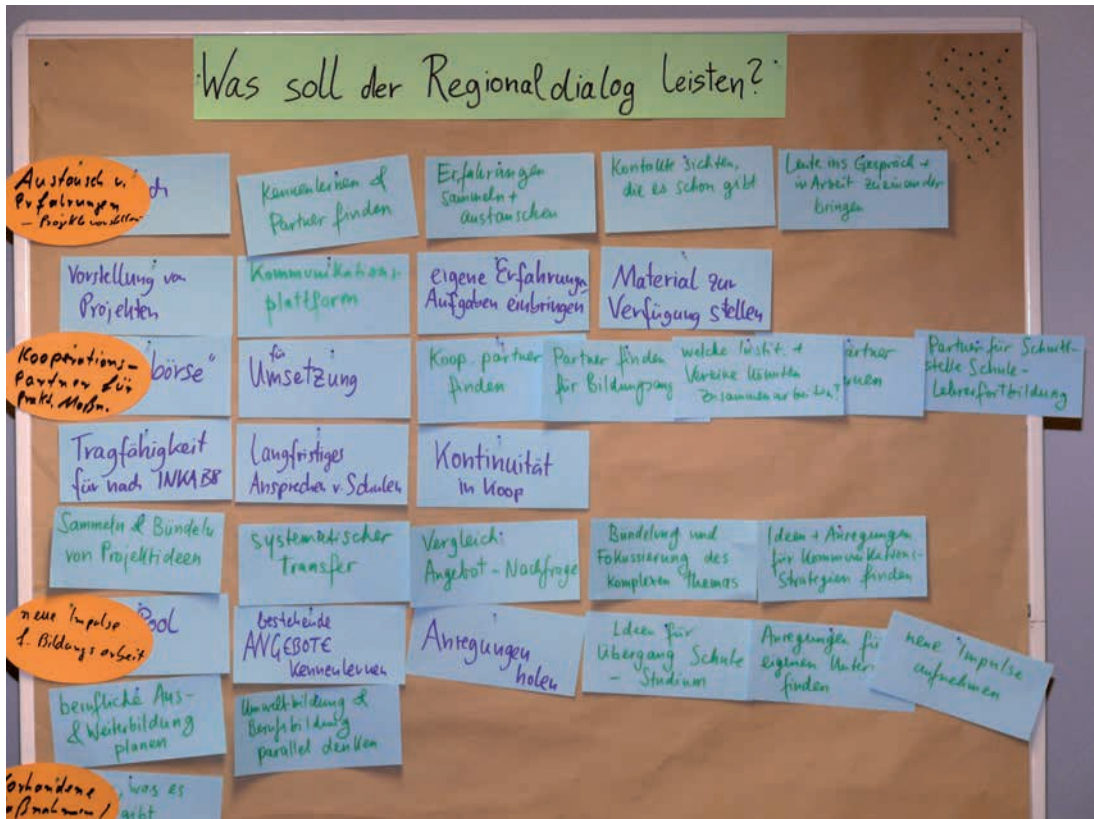 Was soll der Regionaldialog leisten?
Austausch v.
Erfahrungen
– Projekte vorstellen
ch
Kennenlernen &
Partner finden
Erfahrungen
sammeln +
austauschen
Kontakte sichten,
die es schon gibt
Leute ins Gespräch +
in Arbeit zueinander
bringen
Vorstellung von
Projekten
Kommunikations-
plattform
eigene Erfahrungen
Aufgaben einbringen
Material zur
Verfügung stellen
Kooperations-
partner für
prakt. Maßn.
börse"
für
Umsetzung
Koop. partner
finden
Partner finden
für Bildungsang
welche Instit. +
Vereine könnten
zusammenarbeiten?
artner
nnen
Partner für Schnitt-
stelle Schule-
Lehrerfortbildung
Tragfähigkeit
für nach INKA BB
Langfristiges
Ansprechen v. Schulen
Kontinuität
in Koop
Sammeln & Bündeln
von Projektideen
systematischer
Transfer
Vergleich:
Angebot - Nachfrage
Bündelung und
Fokussierung des
komplexen Themas
Ideen + Anregungen
für Kommunikations-
strategien finden
neue Impulse
f. Bildungsarbeit
Pool
bestehende
ANGEBOTE
kennenlernen
Anregungen
holen
Ideen für
Übergang Schule
– Studium
Anregungen für
eigenen Unter
finden
neue Impulse
aufnehmen
berufliche Aus-
& Weiterbildung
planen
Umweltbildung &
Berufsbildung
parallel denken
Vorhandene
Maßnahmen/
, was es
gibt